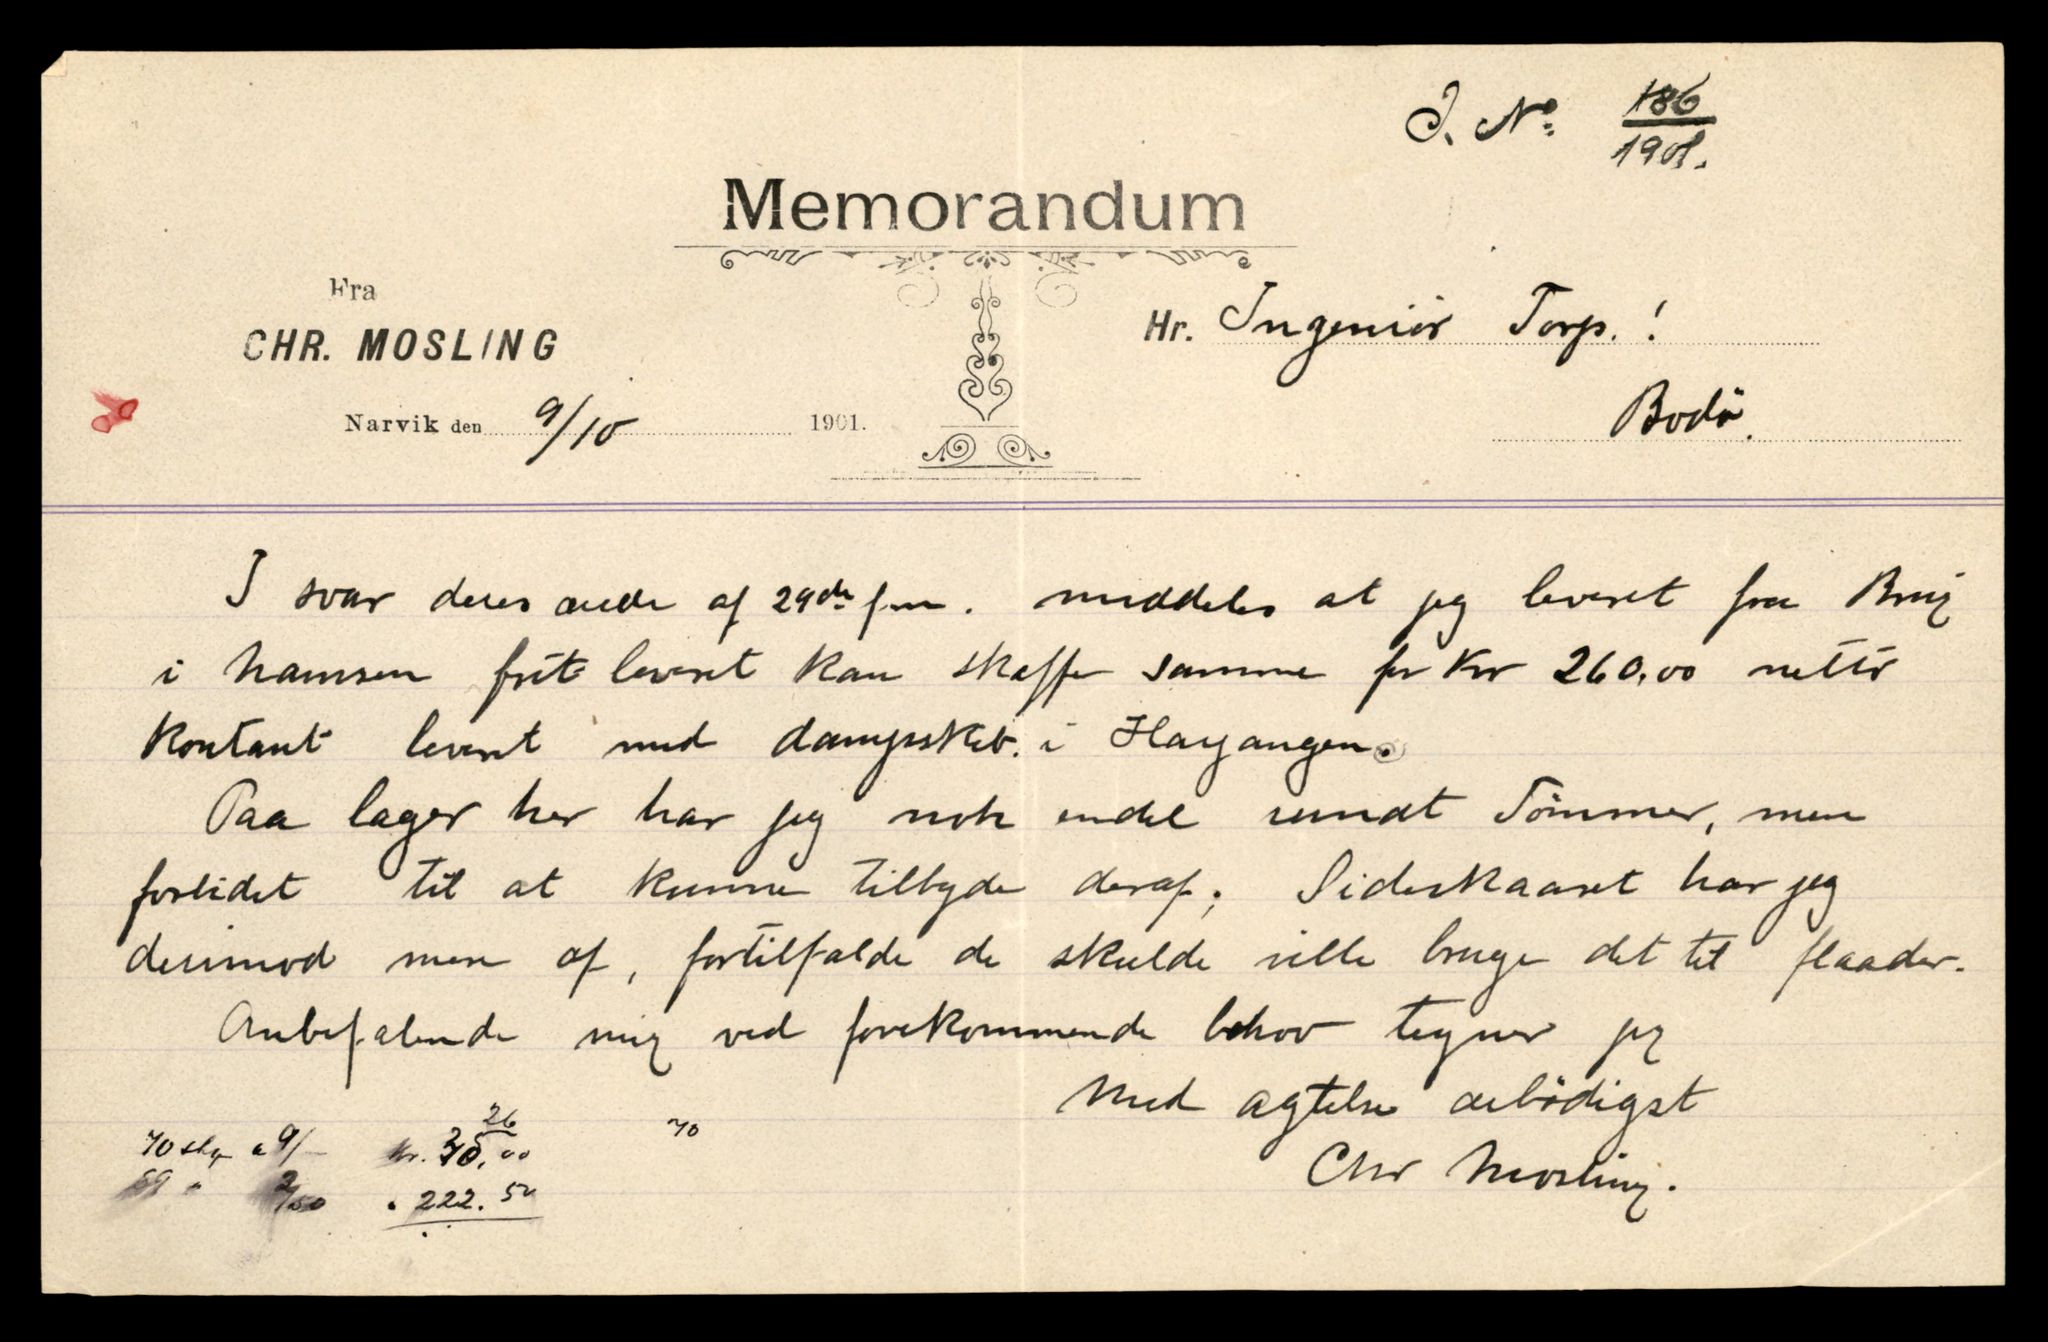 J. No. 186
1901.
Memorandum
Fra
CHR. MOSLING
Hr. Ingeniör Torp.!
Narvik den 9/10 1901.
Bodö.
I svar deres ærede af 29de f.m. meddeles at jeg leveret fra Brug
i Namsen frit leveret kan skaffe samme for Kr 260,00 netto
kontant leveret med dampskib. i Haganger.
Paa lager her har jeg nok endel rundt Tömmer, men
forlidet til at kunne tilbyde deraf; Sideskaaret har jeg
derimod mere af, fortilfælde de skulde ville bruge det til flaader.
Anbefalende mig ved forekommende behov tegner jeg
Med agtelse ærbödigst
Chr Mosling.
70 a 9/ Kr. 00
26
70
89 " 2/50 " 222.50